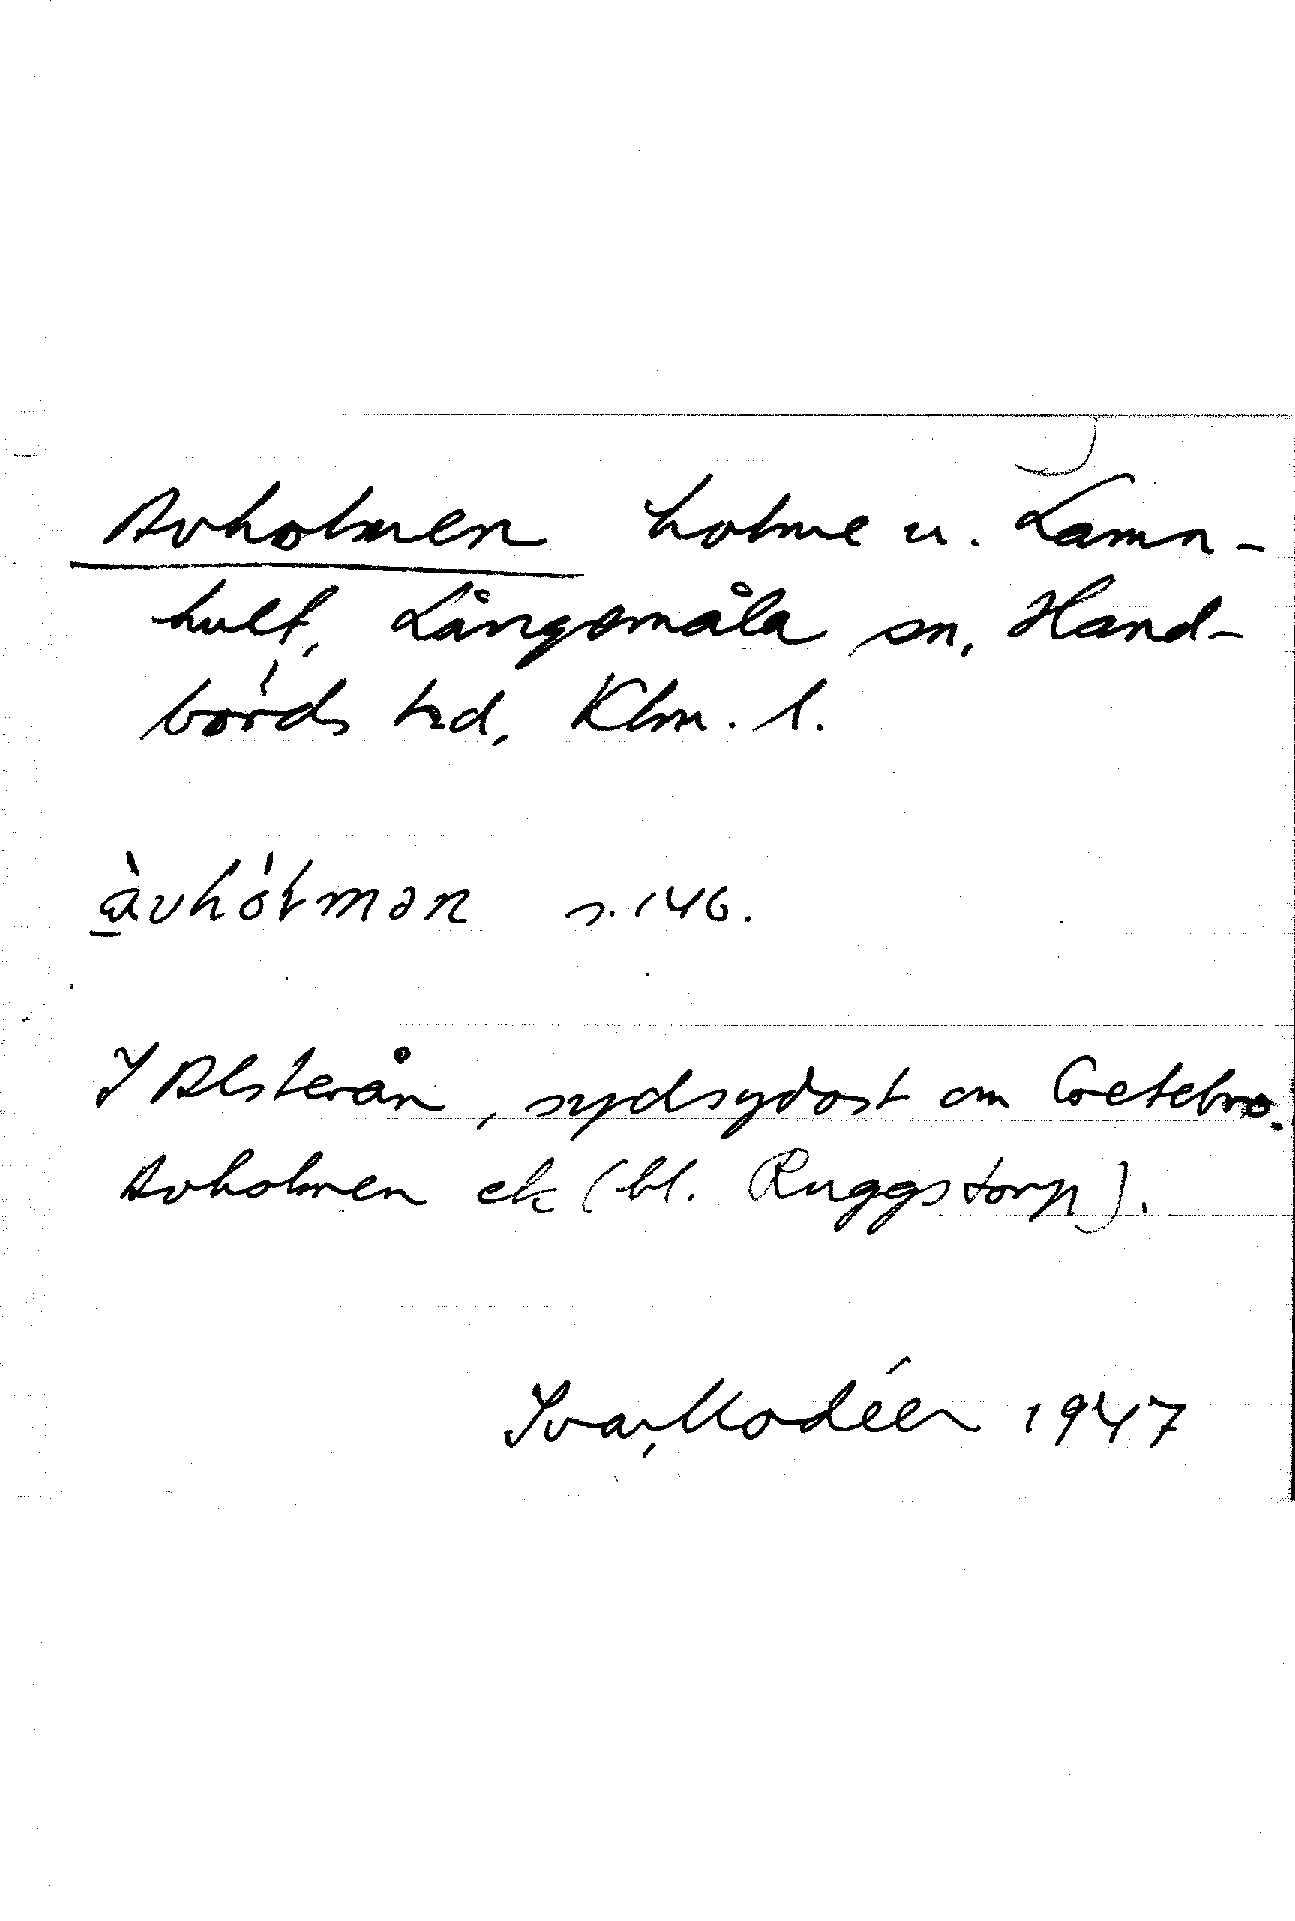 Avholmen holme u. Lamn-
hult, Långemåla sn, Hand-
börds hd, Klm. l.
àvhólmən s. 146.
I Alsterån, sydsydost om Getebro.
Avholmen ek (bl. Ruggstorp).
Ivar Modéer 1947